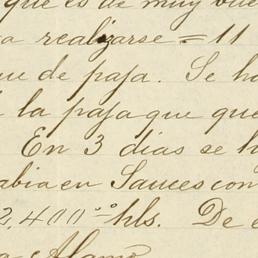 que es de muy bue
a realizarse = 11
ue de paja. Se ha
la paja que que
En 3 dias se h
abia en Sauces con
2,400 hls. De e
Alamo